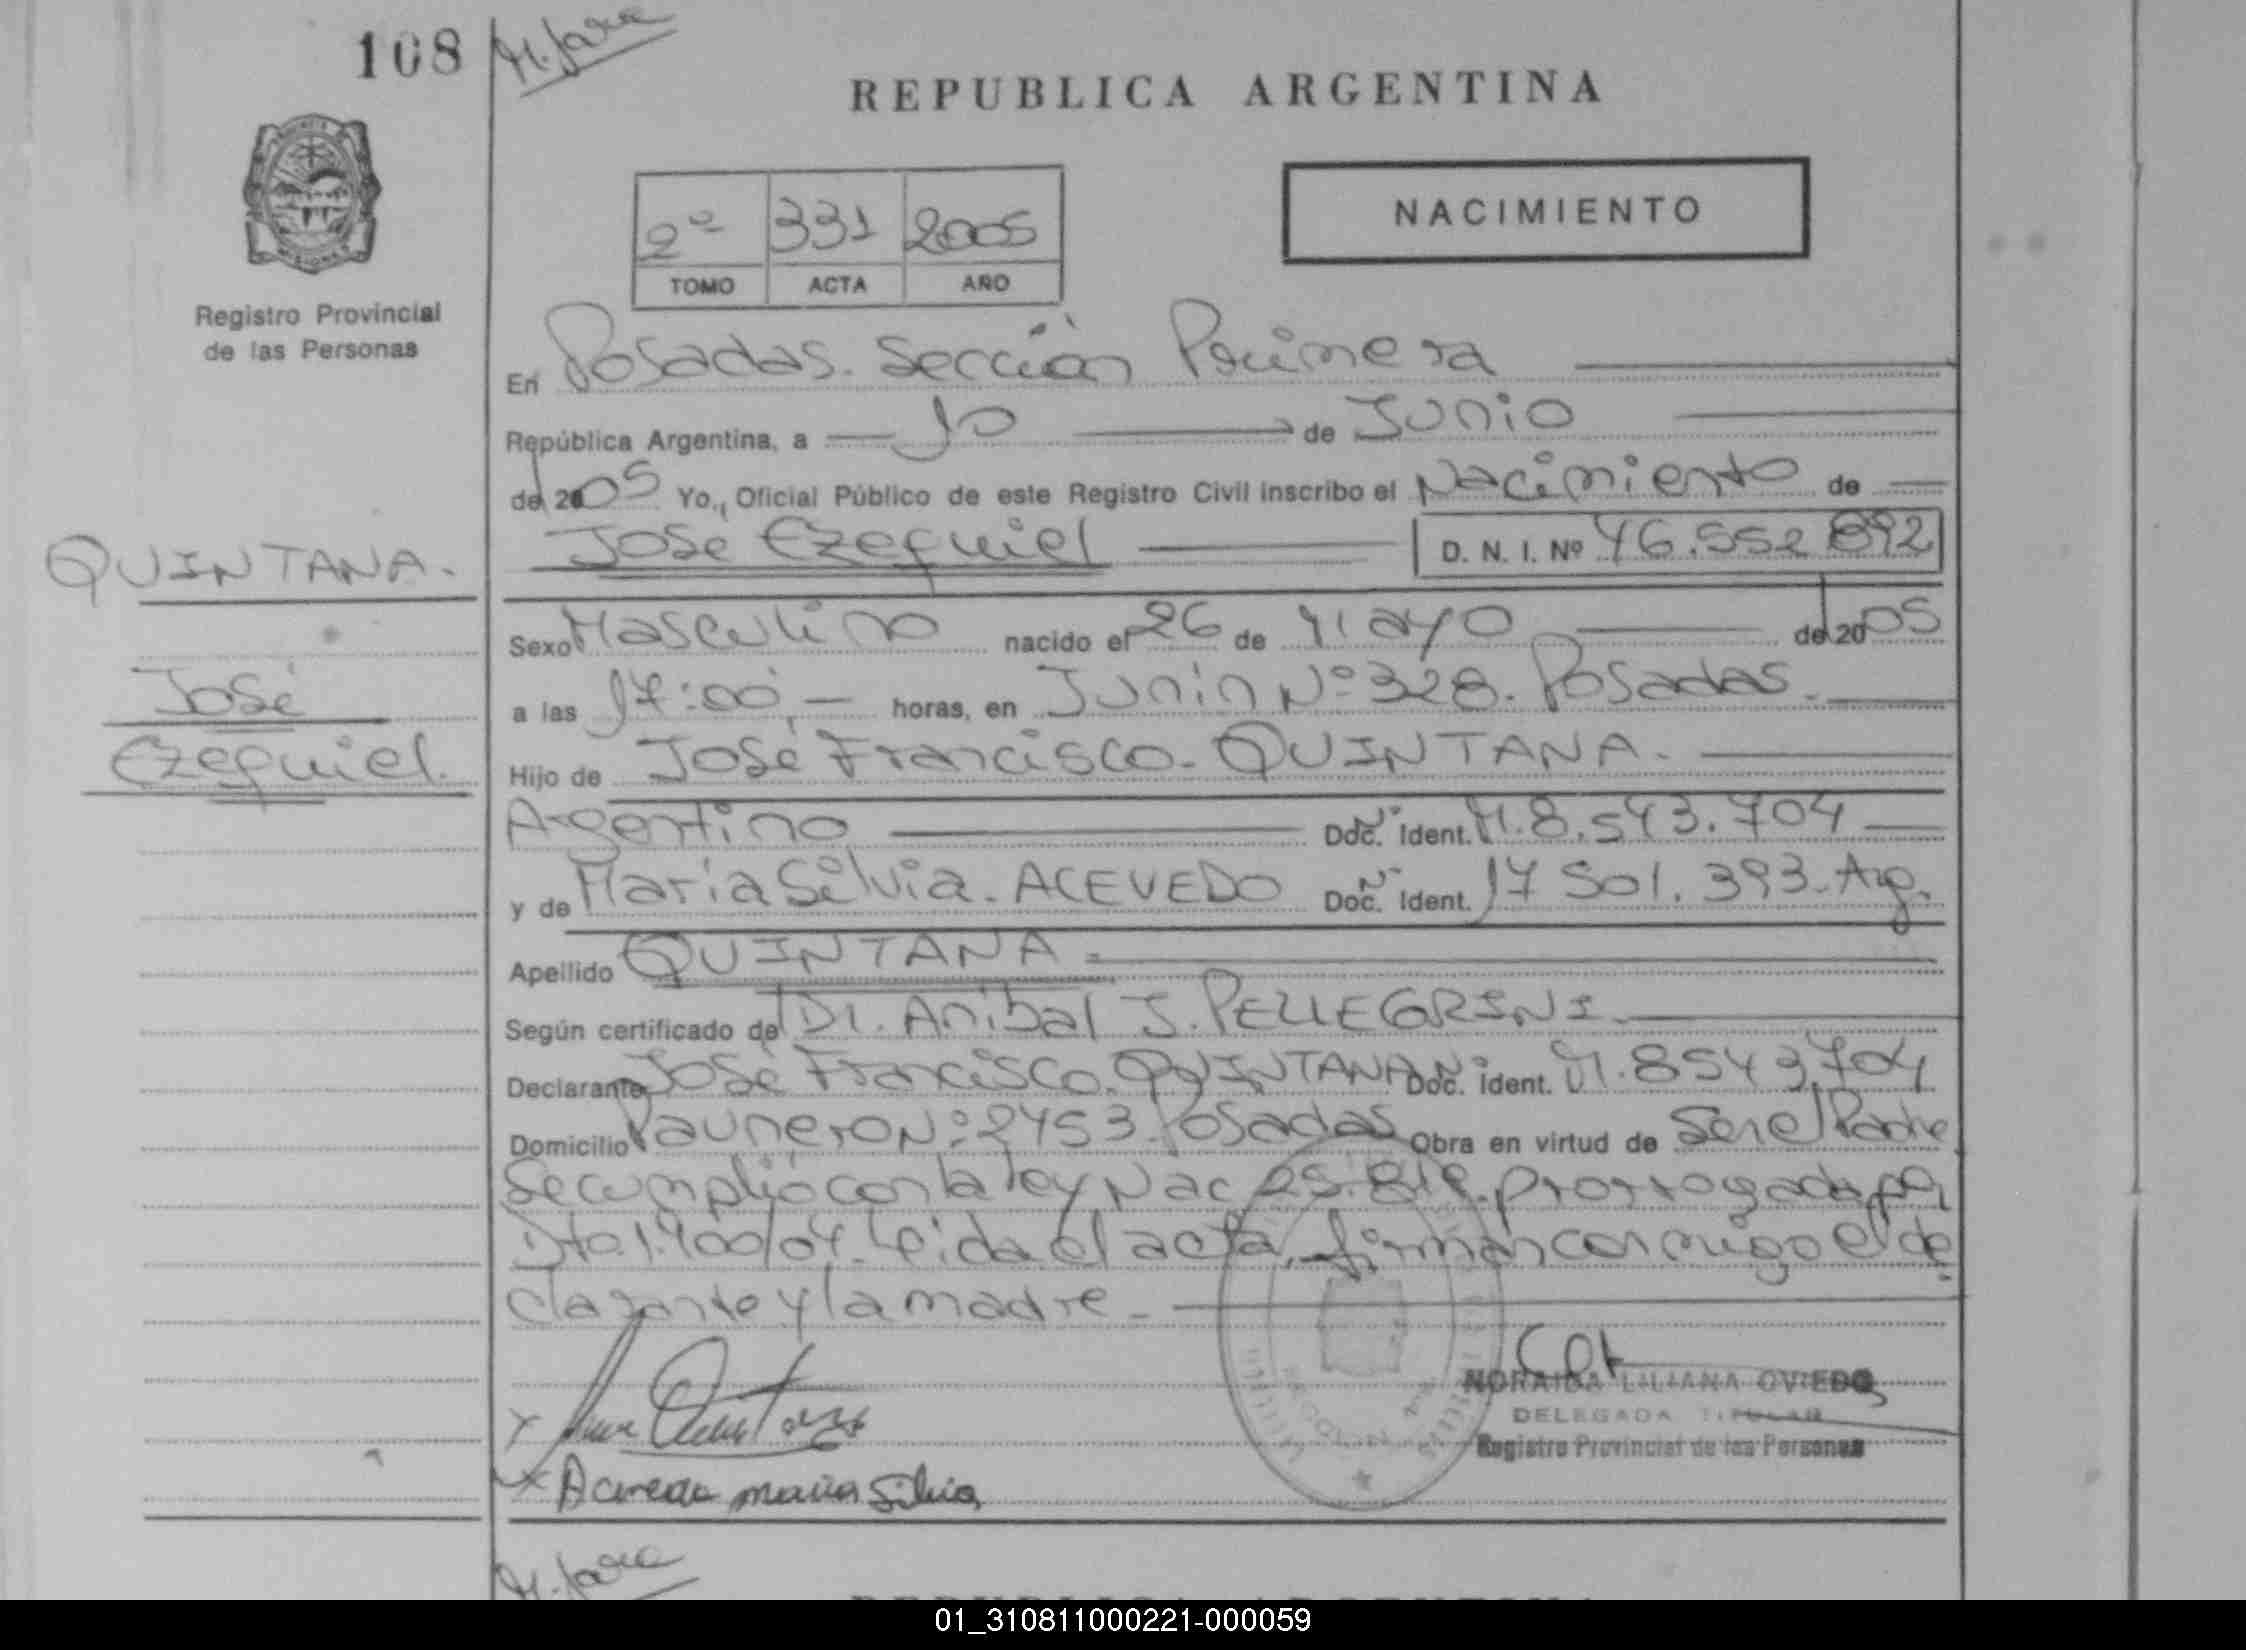 108
REPUBLICA ARGENTINA
NACIMIENTO
2º 331 2005
TOMO ACTA AÑO
Registro Provincial
de las Personas
En Posadas. Sección Primera
República Argentina, a 10 de Junio
del 2005 Yo, Oficial Público de este Registro Civil inscribo el Nacimiento de
José Ezequiel D. N. I. Nº 46.552 892
QUINTANA.
José
Ezequiel.
Sexo Masculino nacido el 26 de Mayo del 2005
a las 17:00, horas, en Junín Nº 328. Posadas.
Hijo de José Francisco. QUINTANA.
Argentino Doc. Ident. M. 8.543.704
y de María Silvia. ACEVEDO Doc. Ident. 17 501. 393. Arg.
Apellido QUINTANA
Según certificado de Dr. Anibal J. PELLEGRINI.
Declarante José Francisco. QUINTANA Doc. Ident. M. 8543704
Domicilio Paunero Nº 2453. Posadas Obra en virtud de Ser el Padre
Se cumplió con la ley Nac 25.819. prorrogada por
Dto. 1.400/04. Leida el acta, firman conmigo el de
clarante y la madre.
NORAIDA LILIANA OVIEDO
DELEGADA TITULAR
Registro Provincial de las Personas
x Acevedo maria Silvia
01_310811000221-000059